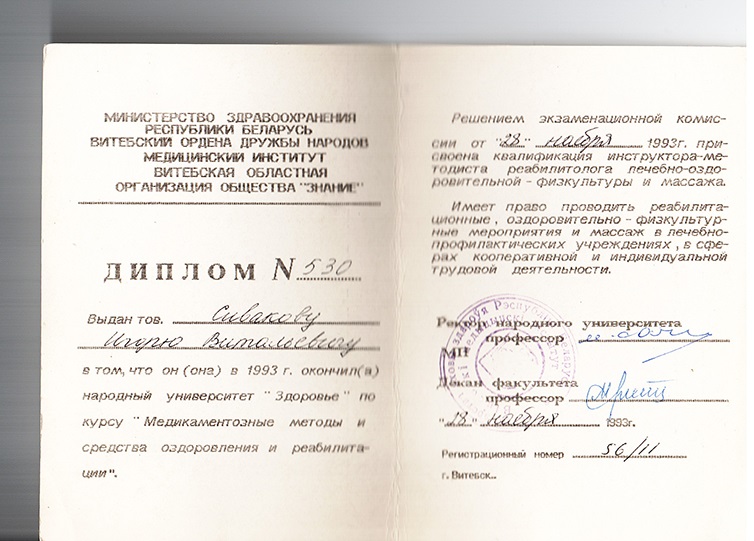 МИНИСТЕРСТВО ЗДРАВООХРАНЕНИЯ
РЕСПУБЛИКИ БЕЛАРУСЬ
ВИТЕБСКИЙ ОРДЕНА ДРУЖБЫ НАРОДОВ
МЕДИЦИНСКИЙ ИНСТИТУТ
ВИТЕБСКАЯ ОБЛАСТНАЯ
ОРГАНИЗАЦИЯ ОБЩЕСТВА "ЗНАНИЕ"
ДИПЛОМ N 530
Выдан тов. Сивакову
Игорю Витальевичу
в том, что он (она) в 1993 г. окончил(а)
народный университет "Здоровье" по
курсу "Медикаментозные методы и
средства оздоровления и реабилита-
ции".
Решением экзаменационной комис-
сии от "28" ноября 1993г. при-
своена квалификация инструктора-ме-
тодиста реабилитолога лечебно-оздо-
ровительной - физкультуры и массажа.
Имеет право проводить реабилита-
ционные, оздоровительно - физкультур-
ные мероприятия и массаж в лечебно-
профилактических учреждениях, в сфе-
рах кооперативной и индивидуальной
трудовой деятельности.
Ректор народного университета
профессор
МП
Декан факультета
профессор
"28" ноября 1993г.
Регистрационный номер 56/11
г. Витебск..